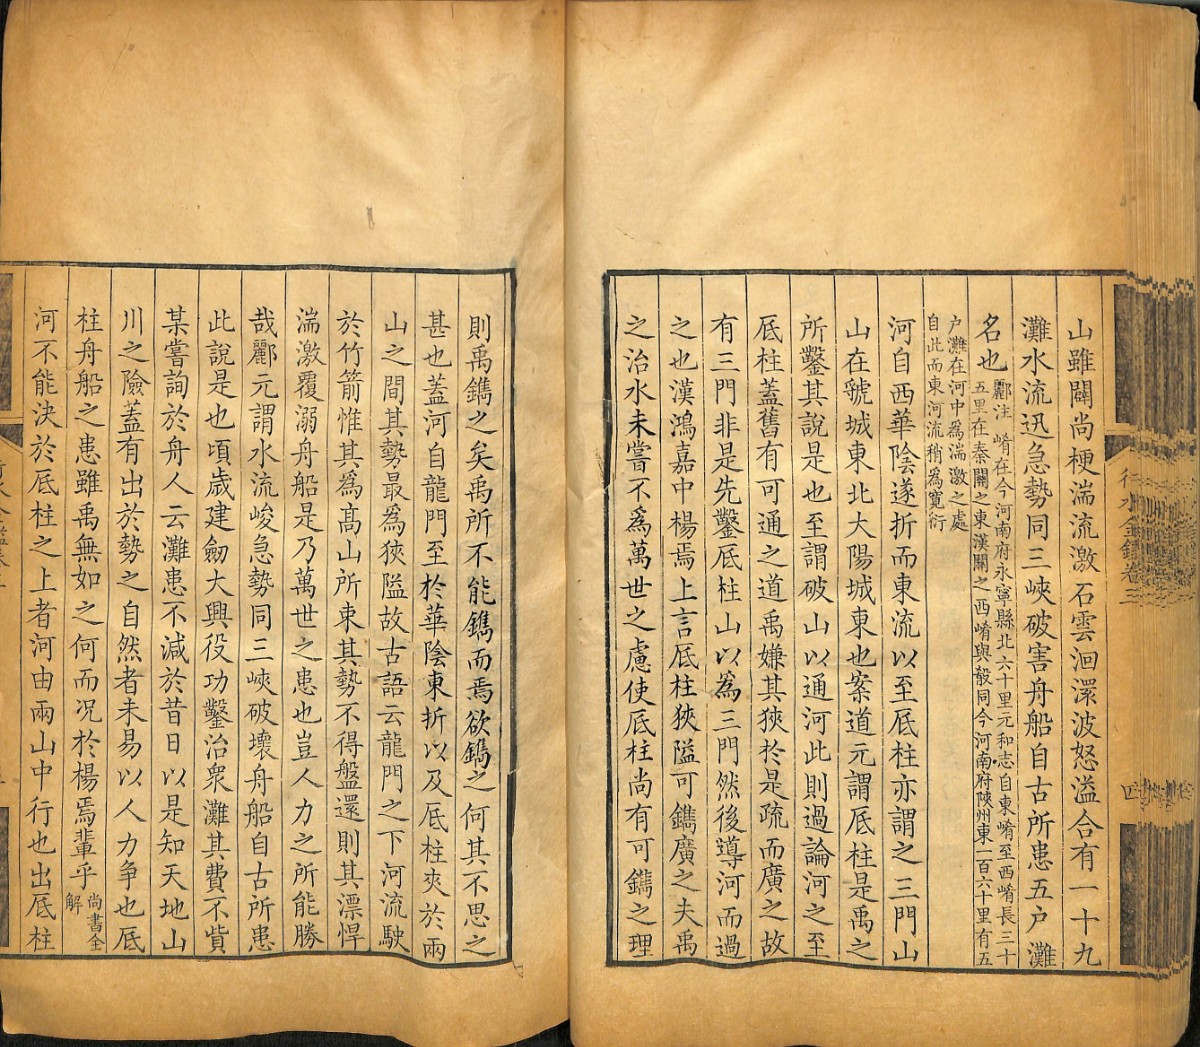 山雖闢尚梗湍流激石雲洄澴波怒溢合有一十九
灘水流迅急勢同三峽破害舟船自古所患五户灘
名也酈注崤在今河南府永寧縣北六十里元和志自東崤至西崤長三十
五里在秦關之東漢關之西崤與殽同今河南府陝州東一百六十里有五
户灘在河中為湍激之處
自此而東河流稍為寛衍
河自西華陰遂折而東流以至厎柱亦謂之三門山
山在虢城東北大陽城東也案道元謂厎柱是禹之
所鑿其說是也至謂破山以通河此則過論河之至
厎柱蓋舊有可通之道禹嫌其狹於是疏而廣之故
有三門非是先鑿厎柱山以為三門然後導河而過
之也漢鴻嘉中楊焉上言厎柱狹隘可鐫廣之夫禹
之治水未嘗不為萬世之慮使厎柱尚有可鐫之理
則禹鐫之矣禹所不能鐫而焉欲鐫之何其不思之
甚也蓋河自龍門至於華陰東折以及厎柱夾於兩
山之間其勢最為狹隘故古語云龍門之下河流駛
於竹箭惟其為高山所束其勢不得盤還則其漂悍
湍激覆溺舟船是乃萬世之患也豈人力之所能勝
哉酈元謂水流峻急勢同三峽破壞舟船自古所患
此說是也頃歲建劒大興役功鑿治衆灘其費不貲
某嘗詢於舟人云灘患不減於昔日以是知天地山
川之險蓋有出於勢之自然者未易以人力爭也厎
柱舟船之患雖禹無如之何而況於楊焉輩乎尚書全
解
河不能決於厎柱之上者河由兩山中行也出厎柱
行水金鑑卷三
四